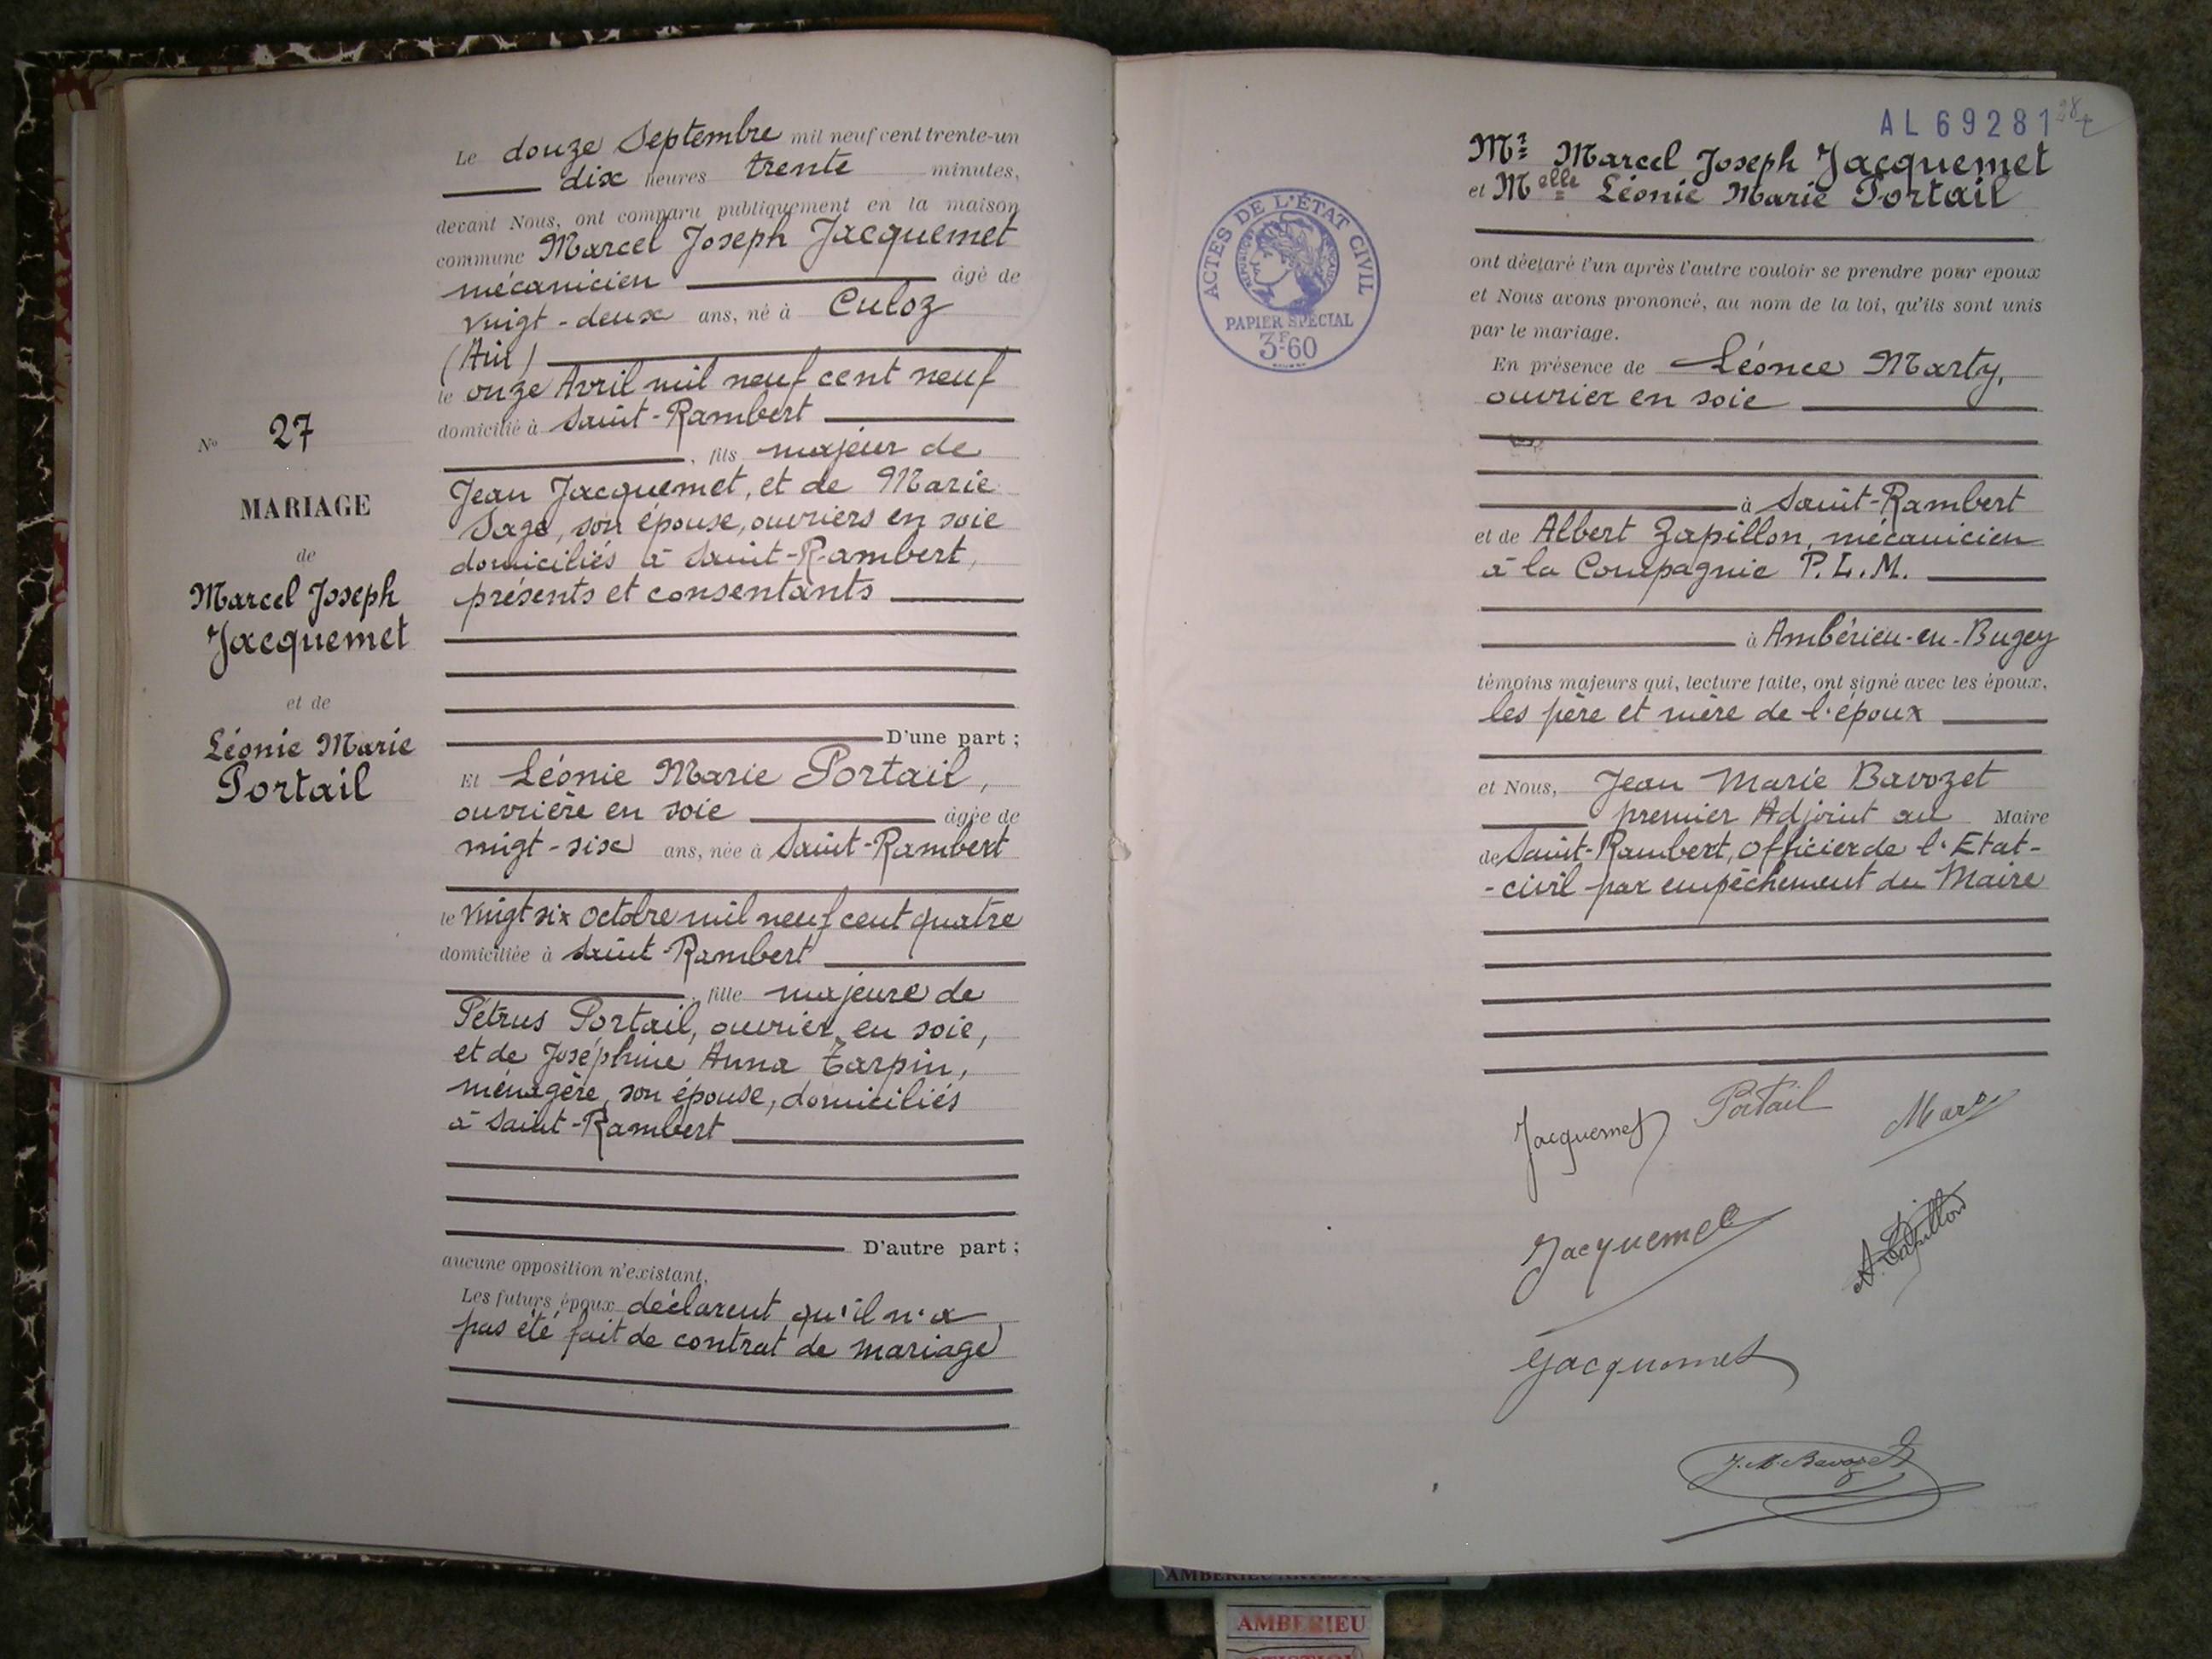 Le douze Septembre mil neuf cent trente-un
dix heures trente minutes,
devant Nous, ont comparu publiquement en la maison
commune Marcel Joseph Jacquemet
mécanicien âgé de
vingt-deux ans, né à Culoz
(Ain)
le onze Avril mil neuf cent neuf
domicilié à Saint-Rambert
, fils majeur de
Jean Jacquemet, et de Marie
Sage, son épouse, ouvriers en soie
domiciliés à Saint-Rambert,
présents et consentants
D'une part ;
Et Léonie Marie Portail,
ouvrière en soie âgée de
vingt-six ans, née à Saint-Rambert
le vingt six octobre mil neuf cent quatre
domiciliée à Saint-Rambert
, fille majeure de
Pétrus Portail, ouvrier en soie,
et de Joséphine Anna Tarpin,
ménagère, son épouse, domiciliés
à Saint-Rambert
D'autre part ;
aucune opposition n'existant,
Les futurs époux déclarent qu'il n'a
pas été fait de contrat de mariage
No 27
MARIAGE
de
Marcel Joseph
Jacquemet
et de
Léonie Marie
Portail
AL 69281
ACTES DE L'ÉTAT CIVIL
RÉPUBLIQUE FRANÇAISE
PAPIER SPÉCIAL
3F60
Mr Marcel Joseph Jacquemet
et Melle Léonie Marie Portail
ont déclaré l'un après l'autre vouloir se prendre pour epoux
et Nous avons prononcé, au nom de la loi, qu'ils sont unis
par le mariage.
En présence de Léonce Marty,
ouvrier en soie
à Saint-Rambert
et de Albert Zapillon, mécanicien
à la Compagnie P.L.M.
à Ambérieu-en-Bugey
témoins majeurs qui, lecture faite, ont signé avec les époux,
les père et mère de l'époux
et Nous, Jean Marie Bavozet
premier Adjoint au Maire
de Saint-Rambert, Officier de l'Etat-
-civil par empêchement du Maire
Jacquemet Portail
Jacquemet
A. Zapillon
Jacquemet
J. M. Bavozet
AMBERIEU